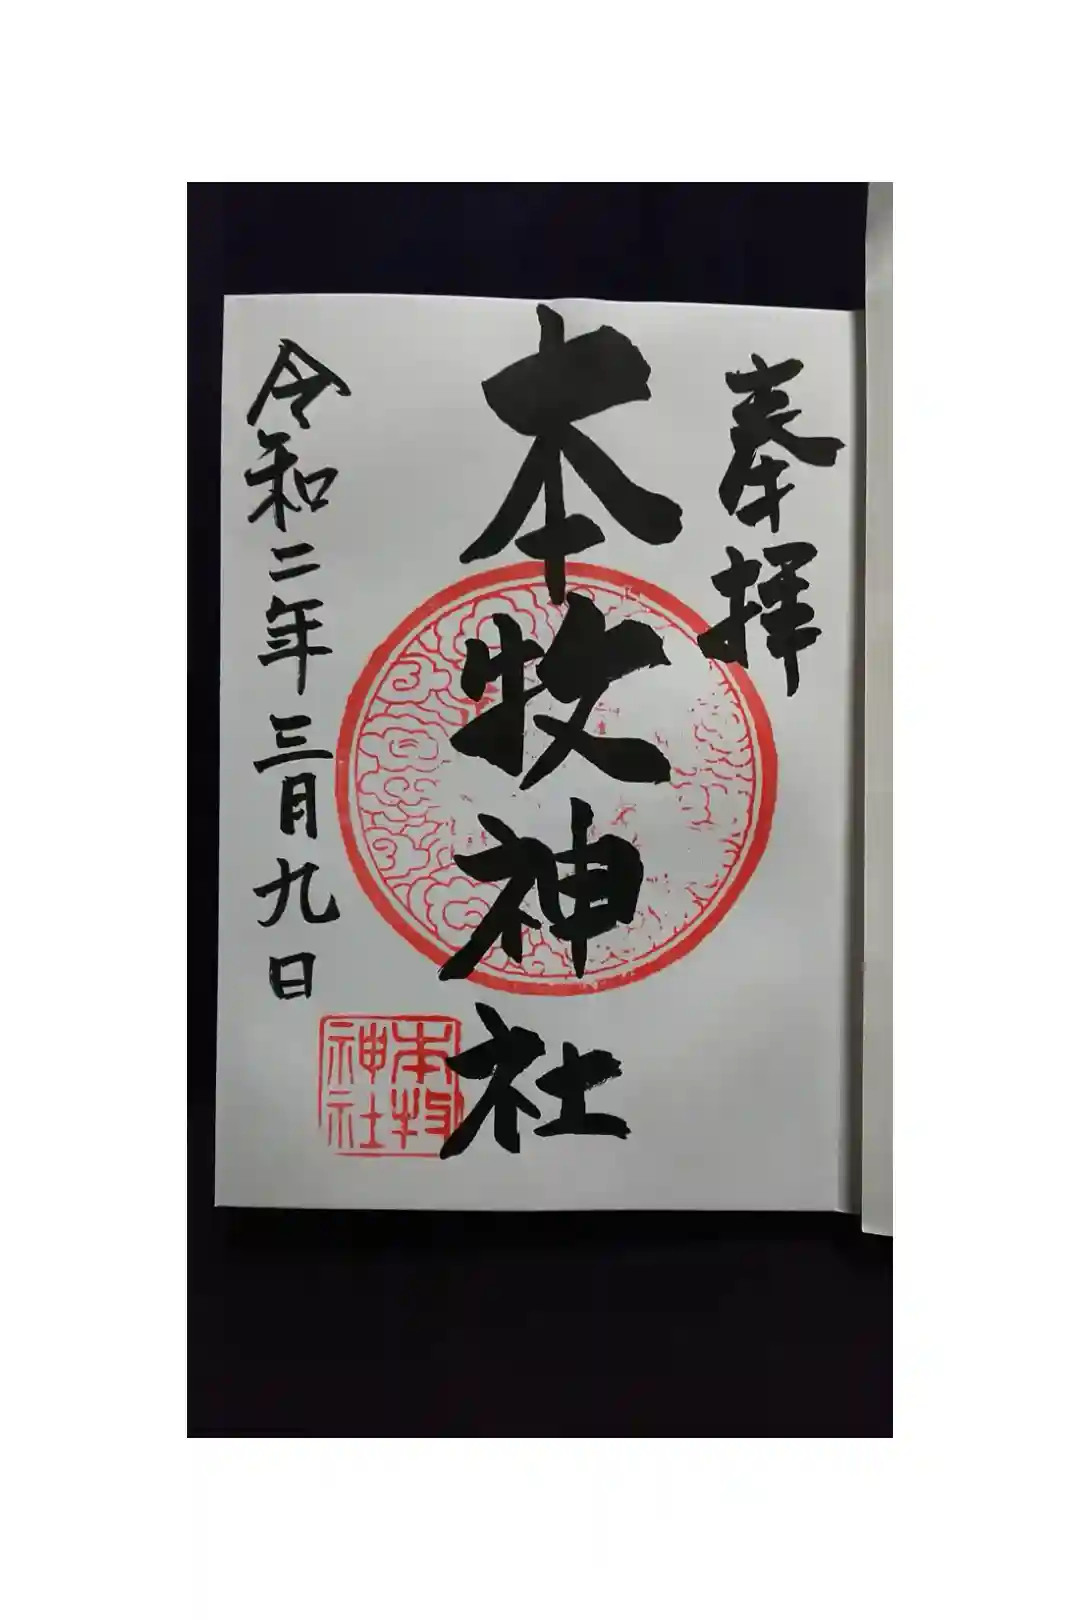 奉拝
本牧神社
令和二年三月九日
本牧
神社